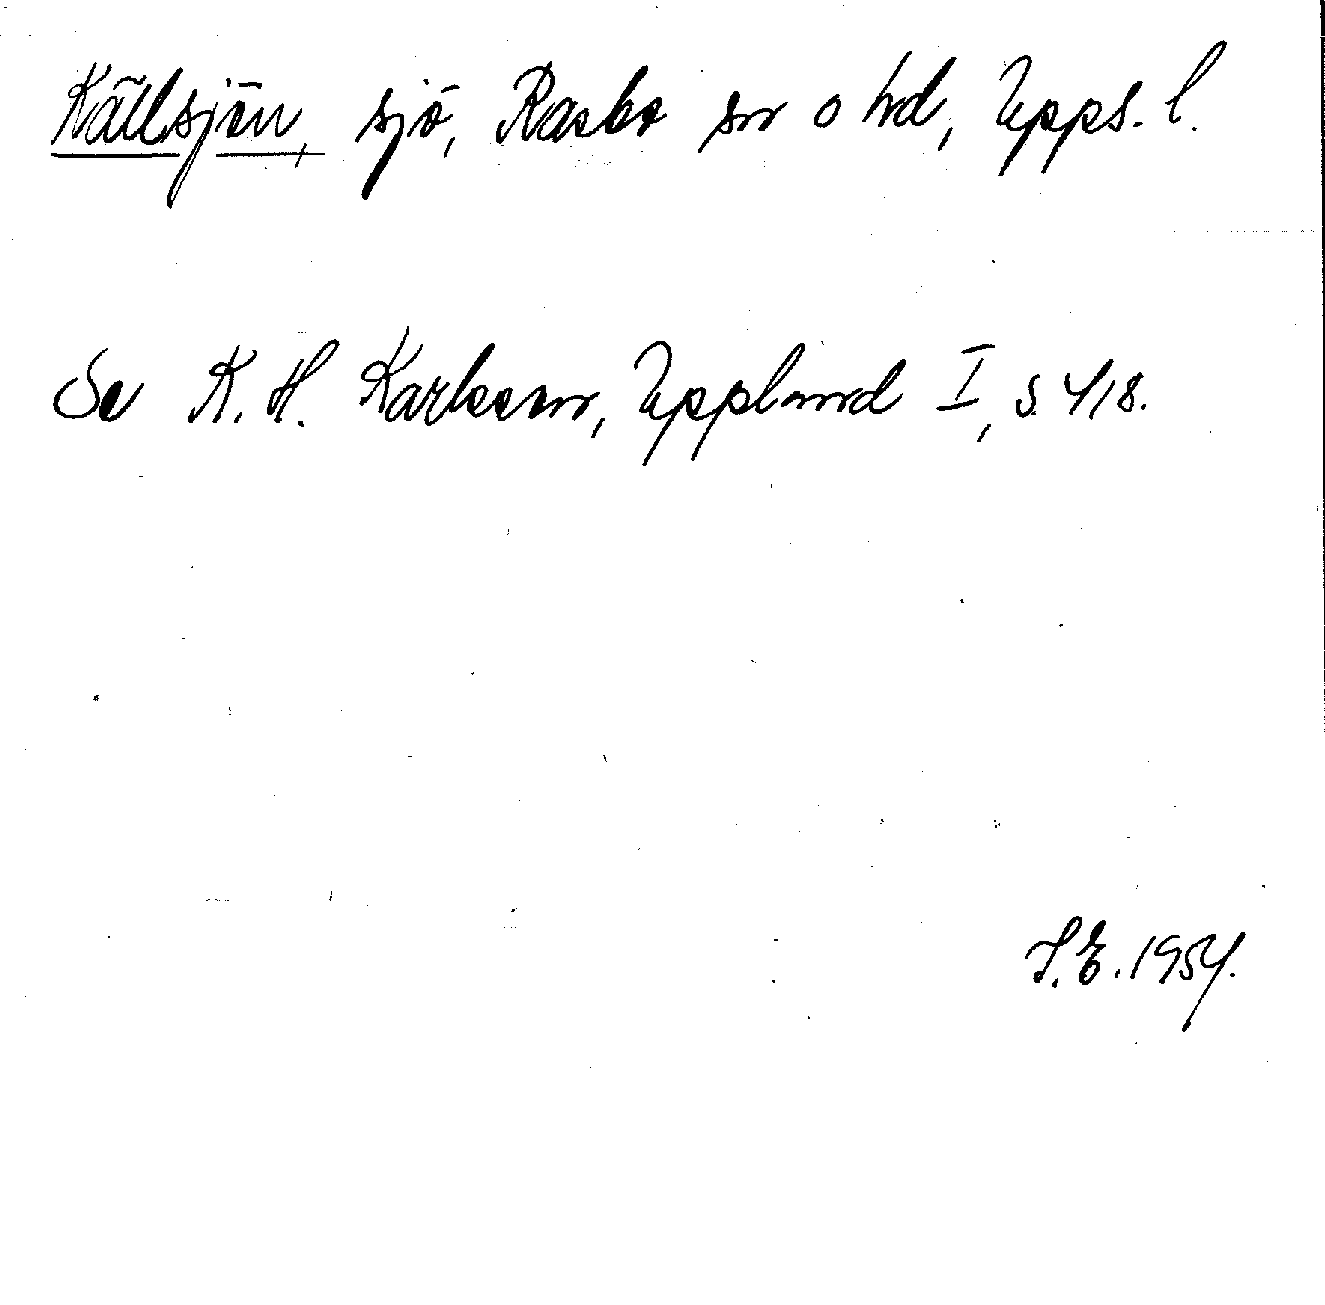 Källsjön, sjö, Rasbo sn o hd, Upps. l.
Se K. H. Karlsson, Uppland I, s. 418.
S.E. 1954.